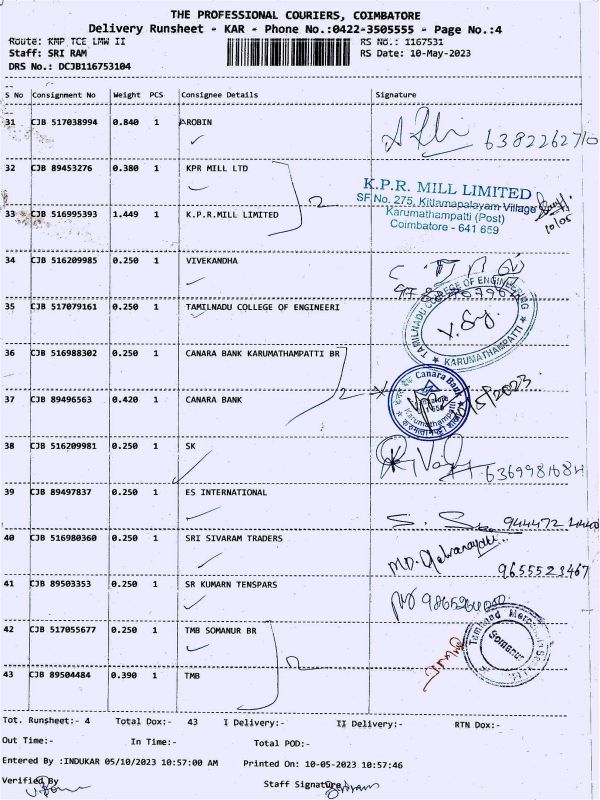 THE PROFESSIONAL COURIERS, COIMBATORE
Delivery Runsheet - KAR - Phone No.:0422-3505555 - Page No.:4
Route: KMP TCE LMW II RS No.: 1167531
Staff: SRI RAM RS Date: 10-May-2023
DRS No.: DCJB116753104
S No Consignment No Weight PCS Consignee Details Signature
31 CJB 517038994 0.840 1 AROBIN
6382262710
32 CJB 89453276 0.380 1 KPR MILL LTD
2
K.P.R. MILL LIMITED
SF No. 275, Kittampalayam Village
33 CJB 516995393 1.449 1 K.P.R.MILL LIMITED
Karumathampatti (Post)
Coimbatore - 641 659
10/05
34 CJB 516209985 0.250 1 VIVEKANDHA
35 CJB 517079161 0.250 1 TAMILNADU COLLEGE OF ENGINEERI
TAMILNADU COLLEGE OF ENGINEERING
KARUMATHAMPATTI
36 CJB 516988302 0.250 1 CANARA BANK KARUMATHAMPATTI BR
2
37 CJB 89496563 0.420 1 CANARA BANK
Canara Bank
Karumathampatti
38 CJB 516209981 0.250 1 SK
6369981684
39 CJB 89497837 0.250 1 ES INTERNATIONAL
40 CJB 516980360 0.250 1 SRI SIVARAM TRADERS
9655523467
41 CJB 89503353 0.250 1 SR KUMARN TENSPARS
42 CJB 517055677 0.250 1 TMB SOMANUR BR
2
Somanur
43 CJB 89504484 0.390 1 TMB
Tot. Runsheet:- 4 Total Dox:- 43 I Delivery:- II Delivery:- RTN Dox:-
Out Time:- In Time:- Total POD:-
Entered By :INDUKAR 05/10/2023 10:57:00 AM Printed On: 10-05-2023 10:57:46
Verified By Staff Signature